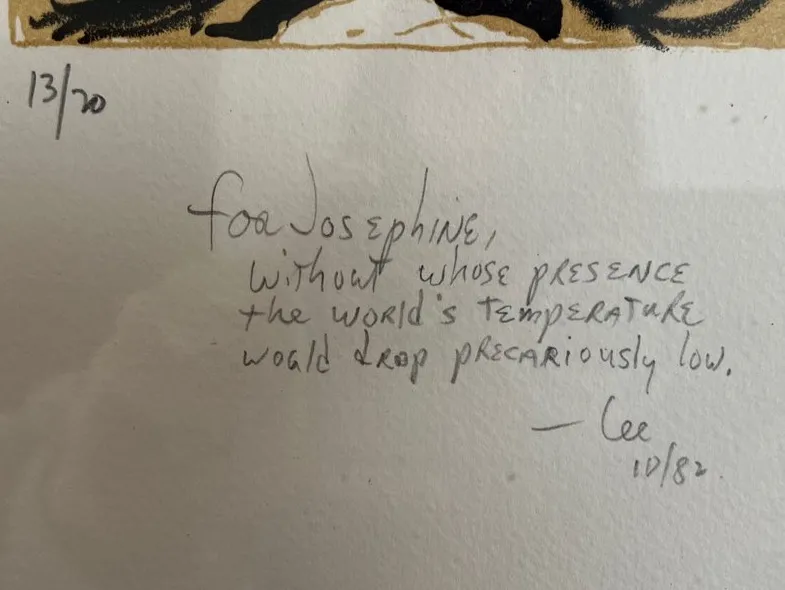 13/20
for Josephine,
without whose presence
the world's temperature
would drop precariously low.
— Lee
10/82